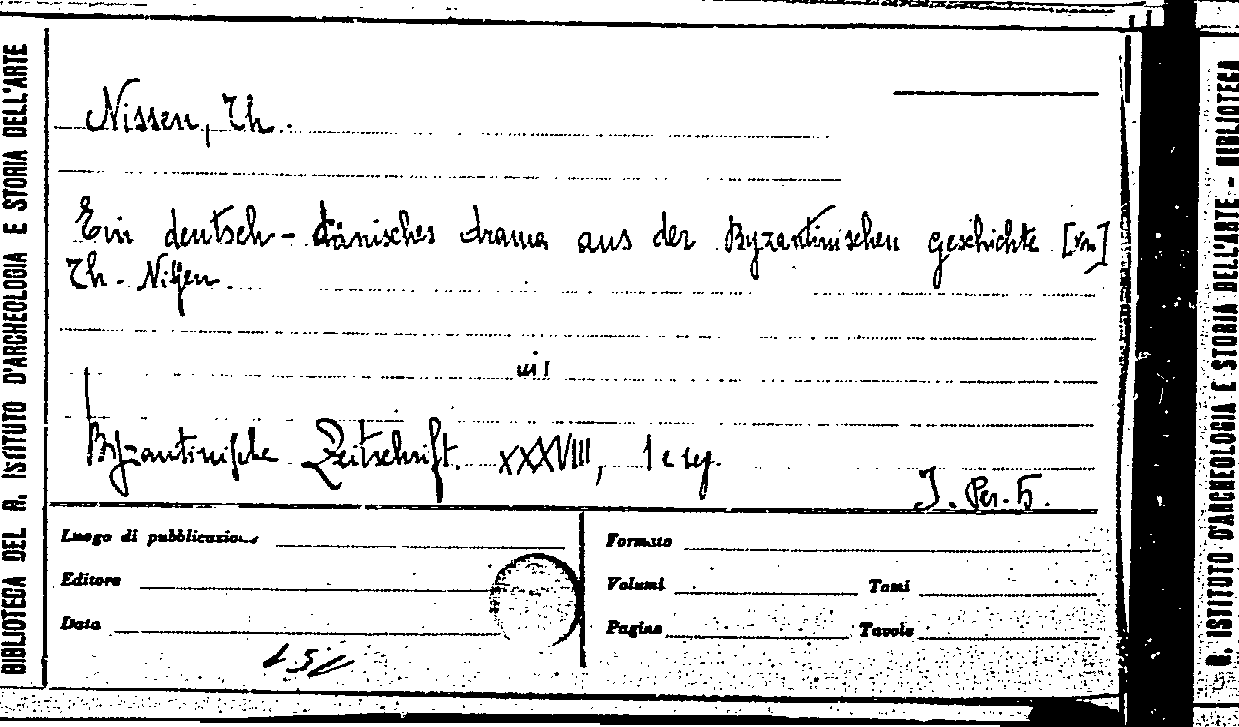 BIBLIOTECA DEL R. ISTITUTO D'ARCHEOLOGIA E STORIA DELL'ARTE
Nissen, Th.
Ein deutsch-dänisches drama aus der Byzantinischen geschichte [von]
Th. Nissen.
in
Byzantinische Zeitschrift. XXXVIII, 1 e seg.
I. Per. 5.
Luogo di pubblicazione
Editore
Data
Formato
Volumi Tomi
Pagine Tavole
R. ISTITUTO D'ARCHEOLOGIA E STORIA DELL'ARTE - BIBLIOTECA